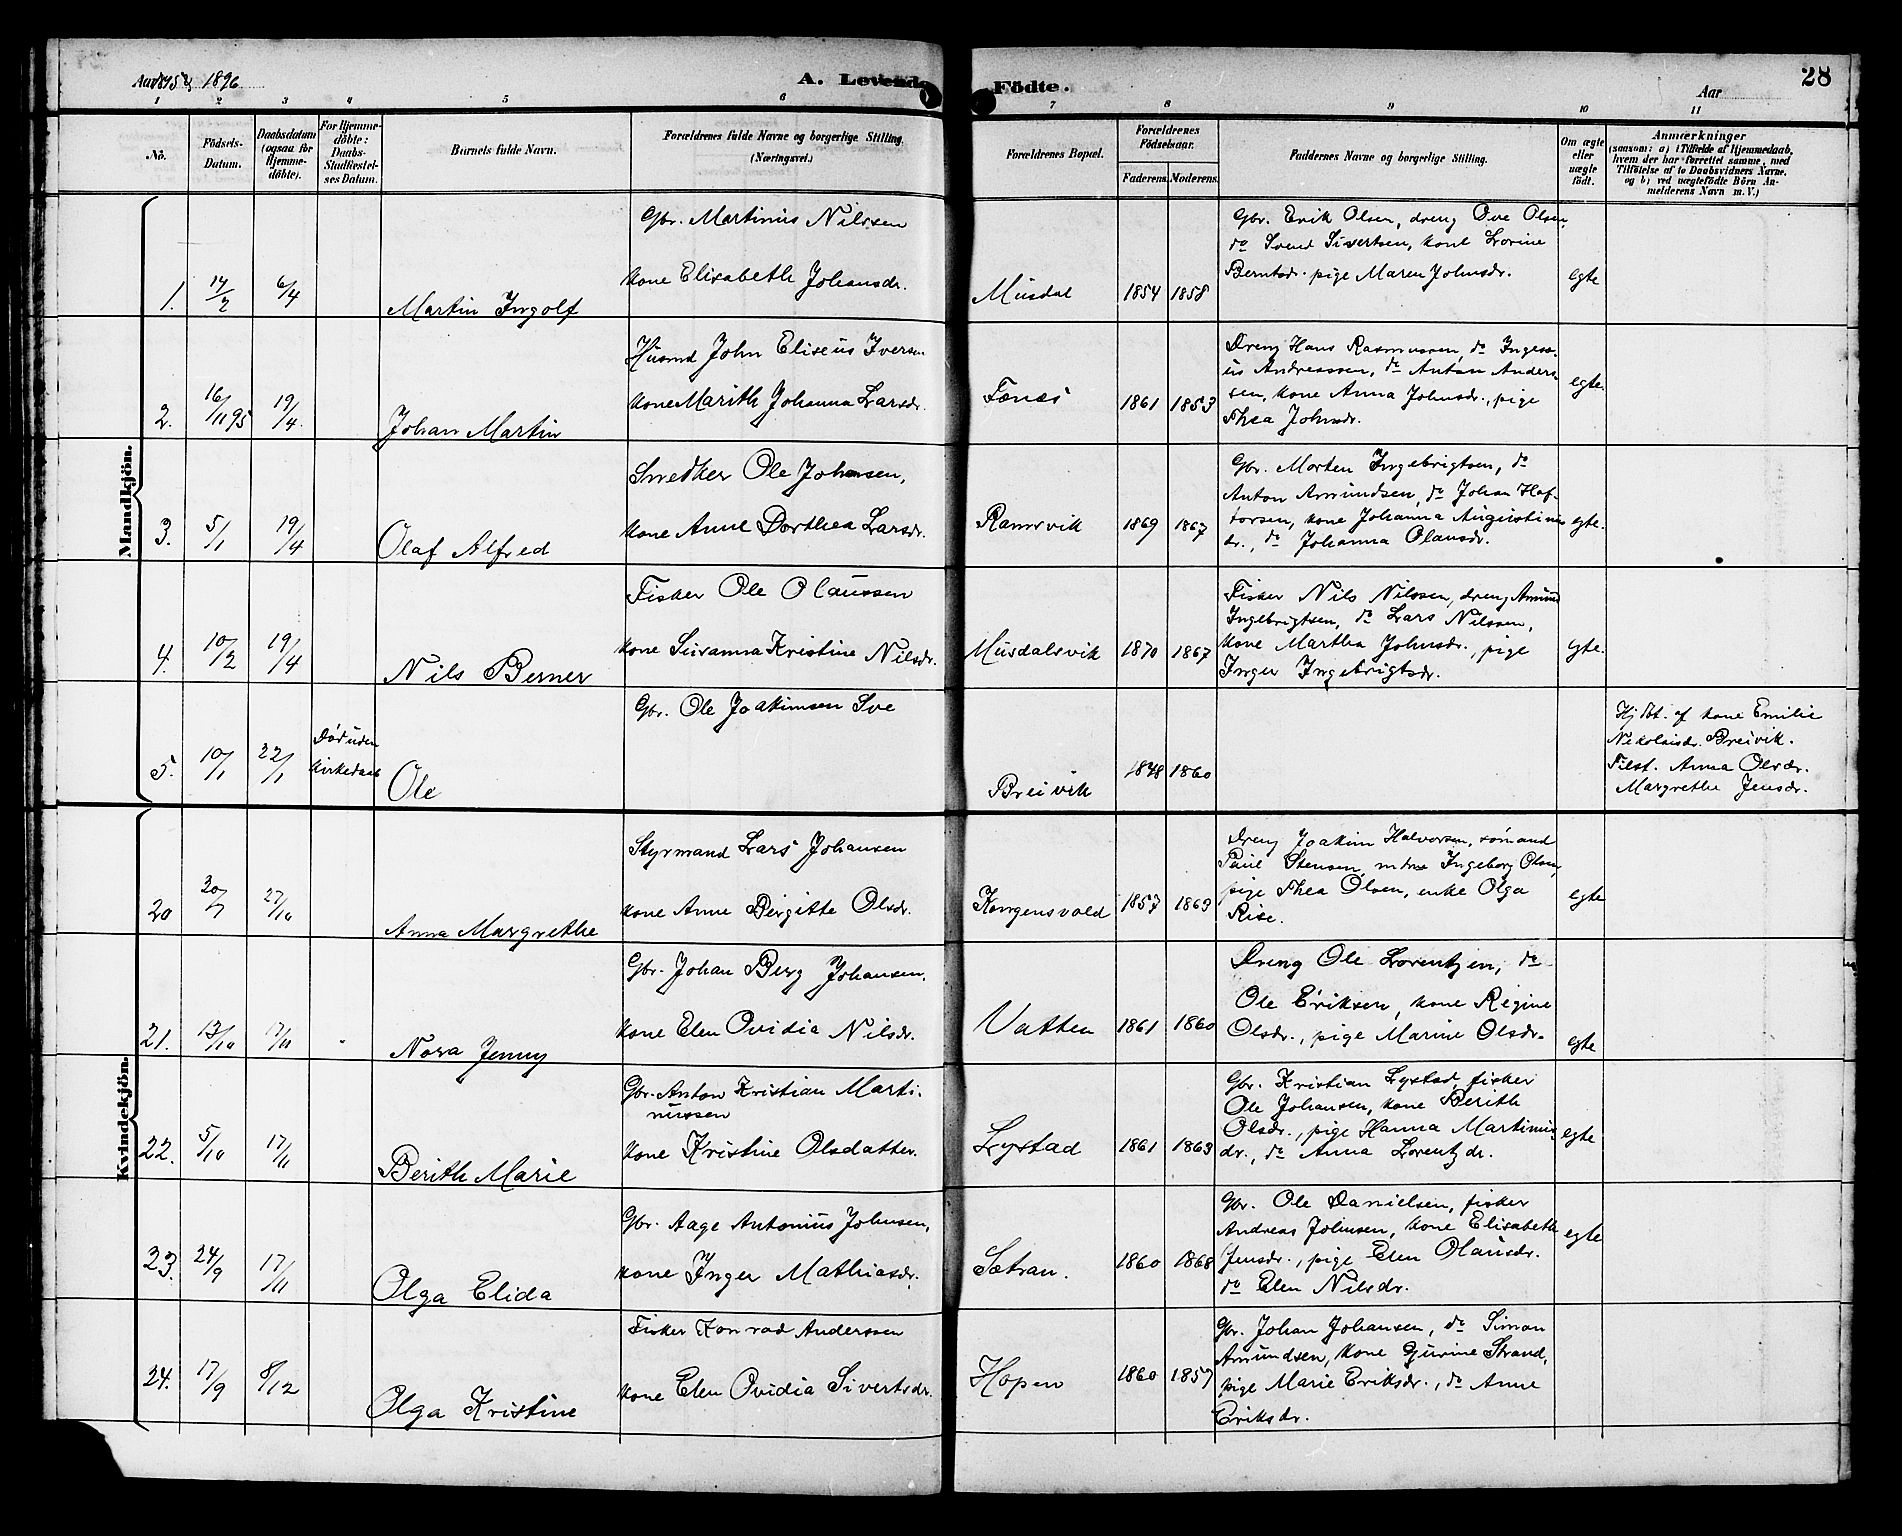 1896
A. Levende Födte.
28
Aar
1 2 3 4 5 6 7 8 9 10 11
No.
Födsels-
Datum.
Daabsdatum
(ogsaa for
Hjemme-
döbte).
For Hjemme-
döbte:
Daabs-
Stadfæstel-
ses Datum.
Barnets fulde Navn.
Forældrenes fulde Navne og borgerlige Stilling
(Næringsvei.)
Forældrenes Bopæl.
Forældrenes
Födselsaar.
Faderens. Moderens.
Faddernes Navne og borgerlige Stilling.
Om ægte
eller
uægte
födt.
Anmærkninger
(saasom: a) i Tilfælde af Hjemmedaab,
hvem der har forrettet samme, med
Tilföielse af to Daabsvidners Navne,
og b) ved uægtefödte Börn An-
melderens Navn m. V.)
Mandkjön.
1. 14/2 6/4
Martin Ingolf
Gbr. Martinus Nilssen
kone Elisabeth Johansdr.
Musdal
1854 1858
Gbr. Erik Olsen, dreng Ove Olsen,
do Svend Sivertsen, kone Lovine
Berntsdr. pige Maren Johnsdr.
egte
2. 16/11 95 19/4.
Johan Martin
Husmd John Eliseus Iversen
kone Marith Johanna Larsdr.
Fænes
1861 1853
Dreng Hans Rasmussen, do Inges-
us Andreassen, do Anton Anders-
sen, kone Anna Johnsdr., pige
Thea Johnsdr.
egte.
3. 5/1 19/4
Olaf Alfred
Snedker Ole Johnsen,
kone Anne Dorthea Larsdr.
Ramsvik
1869 1867
Gbr. Morten Ingebrigtsen, do
Anton Amundsen, do Johan Haf-
torsen, kone Johanna Augustinus
dr., do Johanna Olausdr.
egte.
4. 10/2 19/4
Nils Berner
Fisker Ole Olaussen
kone Susanna Kristine Nilsdr.
Musdalsvik
1870 1867
Fisker Nils Nilssen, dreng Amund
Ingebrigtsen, do Lars Nilssen,
kone Martha Johnsdr., pige
Inger Ingebrigtsdr.
egte.
5. 10/1 22/1
Död uden
kirkedaab
Ole
Gbr. Ole Joakimsen Sve
Breivik
1848 1860
Hjdbt. af kone Emilie
Nikolaisdr. Breivik.
Tilst. Anna Olsdr.
Margrethe Jensdr.
Kvindekjön.
20 20/7 27/10
Anna Margrethe
Styrmand Lars Johansen
kone Anne Birgitte Olsdr.
Kongensvold
1857 1863
Dreng Joakim Halvorsen, sömand
Paul Stensen, mdme Ingeborg Olsen,
pige Thea Olsen, enke Olga
Rise.
egte
21. 13/10 17/11
Nora Jenny
Gbr. Johan Berg Johansen.
kone Elen Ovidia Nilsdr.
Vatten
1861 1860
Dreng Ole Lorentzen, do
Ole Eriksen, kone Regine
Olsdr., pige Marine Olsdr.
egte
22. 5/10 17/11
Berith Marie
Gbr. Anton Kristian Marti-
nussen
kone Kristine Olsdatter.
Lystad
1861 1863
Gbr. Kristian Lystad, fisker
Ole Johansen, kone Berith
Olsdr., pige Hanna Martinus-
dr., do Anna Lorentzdr.
egte
23. 24/9 17/11
Olga Elida
Gbr. Aage Antonius Johnsen,
kone Inger Mathiasdr.
Sætran.
1860 1868
Gbr. Ole Danielsen, fisker
Andreas Johnsen, kone Elisabeth
Jensdr., pige Elen Olausdr.
do Elen Nilsdr.
egte
24. 17/9 8/12
Olga Kristine
Fisker Konrad Anderssen
kone Elen Ovidia Sivertsdr.
Hopen
1860 1857
Gbr. Johan Johansen, do Simon
Amundsen, kone Gurine Strand,
pige Marie Eriksdr., do Anne
Eriksdr.